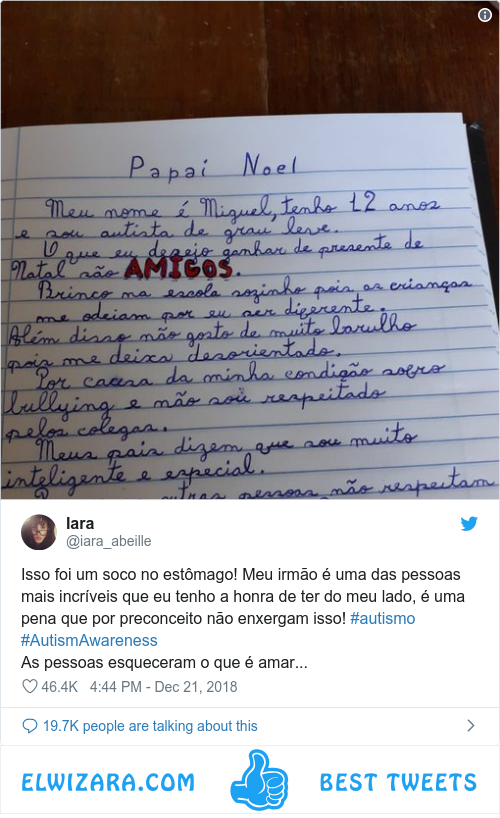 Papai Noel
Meu nome é Miguel, tenho 12 anos
e sou autista de grau leve.
O que eu desejo ganhar de presente de
Natal são AMIGOS.
Brinco na escola sozinho pois as crianças
me odeiam por eu ser diferente.
Além disso não gosto de muito barulho
pois me deixa desorientado.
Por causa da minha condição sofro
bullying e não sou respeitado
pelos colegas.
Meus pais dizem que sou muito
inteligente e especial.
outras pessoas não respeitam
Iara
@iara_abeille
Isso foi um soco no estômago! Meu irmão é uma das pessoas
mais incríveis que eu tenho a honra de ter do meu lado, é uma
pena que por preconceito não enxergam isso! #autismo
#AutismAwareness
As pessoas esqueceram o que é amar...
46.4K 4:44 PM - Dec 21, 2018
19.7K people are talking about this
ELWIZARA.COM BEST TWEETS